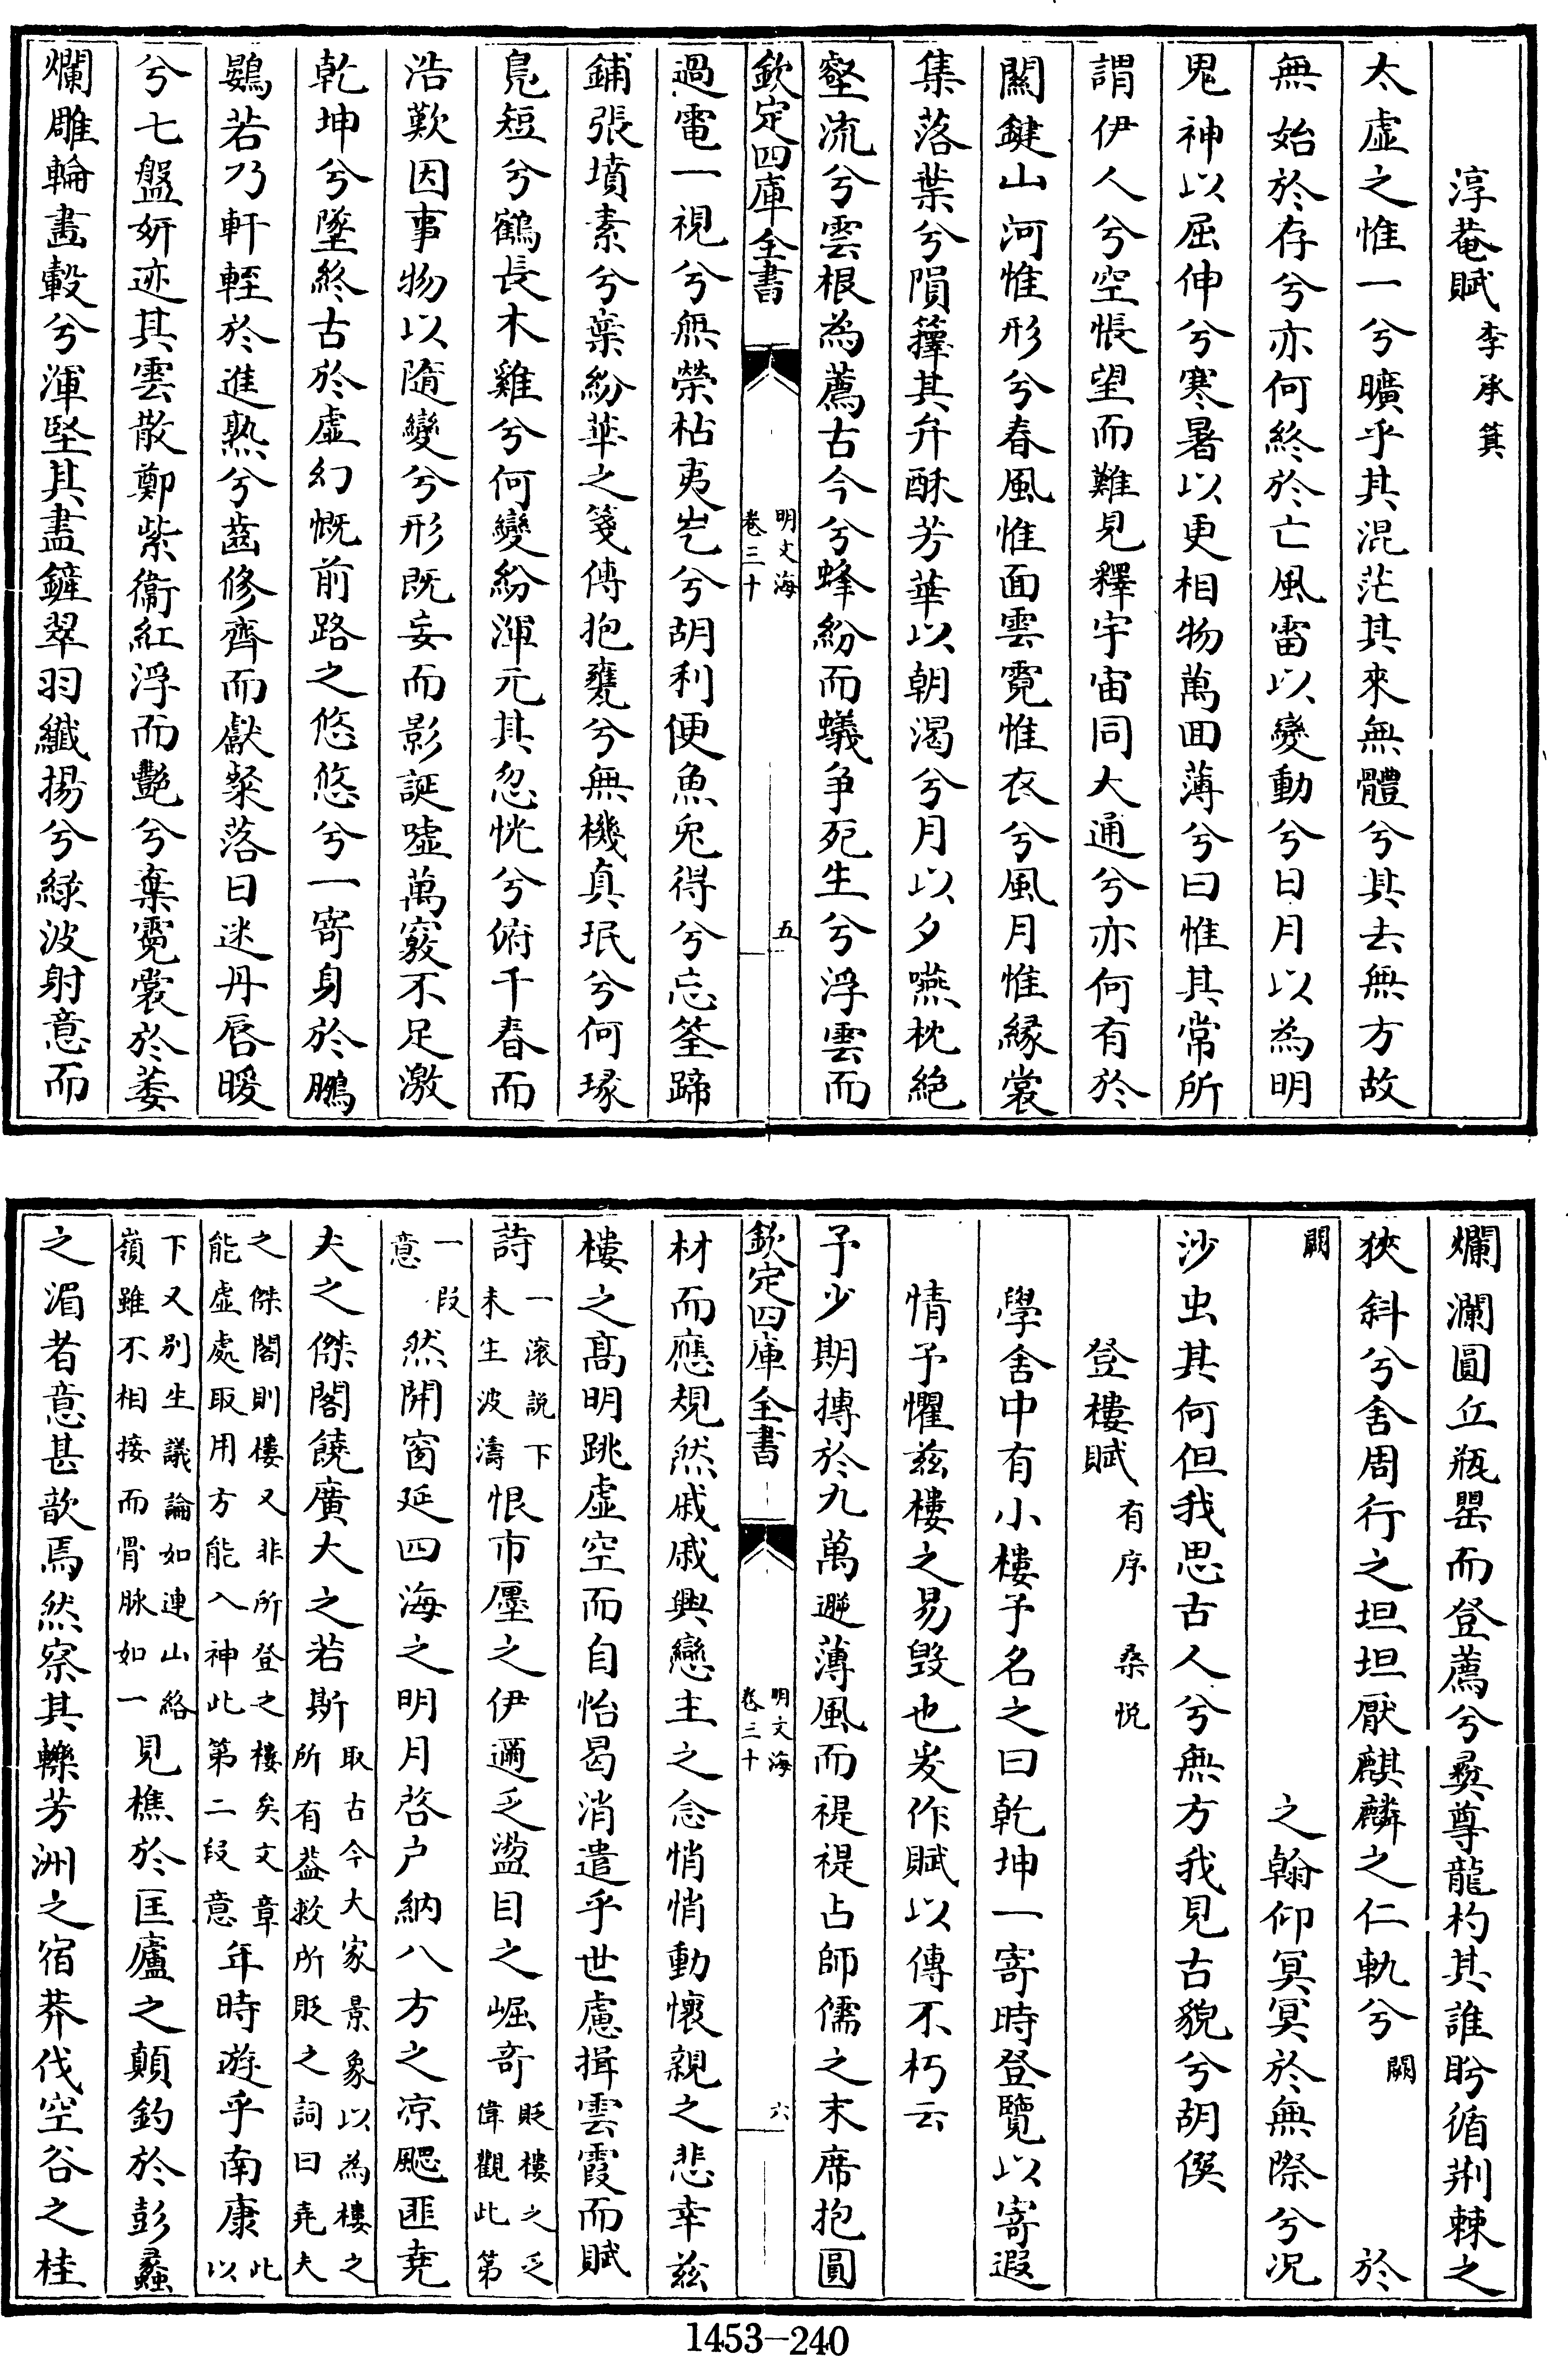 淳菴賦李承箕
太虛之惟一兮曠乎其混茫其來無體兮其去無方故
無始於存兮亦何終於亡風雷以變動兮日月以為明
鬼神以屈伸兮寒暑以更相物萬囬薄兮曰惟其常所
謂伊人兮空悵望而難見釋宇宙同大通兮亦何有於
關鍵山河惟形兮春風惟面雲霓惟衣兮風月惟緣裳
集落葉兮隕籜其弁酥芳華以朝渴兮月以夕嚥枕絶
壑流兮雲根為薦古今兮蜂紛而蟻爭死生兮浮雲而
欽定四庫全書
明文海
卷三十
五
過電一視兮無榮枯夷岂兮胡利便魚兔得兮忘筌蹄
鋪張墳素兮棄紛華之箋傳抱甕兮無機真珉兮何琢
鳧短兮鶴長木雞兮何變紛渾元其忽恍兮俯千春而
浩歎因事物以隨變兮形既妄而影誕噓萬竅不足激
乾坤兮墜終古於虛幻慨前路之悠悠兮一寄身於鵬
鷃若乃軒輊於進熟兮齒修齊而獻粲落日迷丹唇暖
兮七盤妍迹其雲散鄭紫衞紅浮而艷兮棄霓裳於萎
爛雕輪畫轂兮渾堅其盡鏟翠羽纖揚兮綠波射意而
爛瀾圓丘瓶罍而登薦兮彛尊龍杓其誰盻循荆棘之
狹斜兮舍周行之坦坦厭麒麟之仁軌兮闕於
闕之翰仰冥冥於無際兮況
沙虫其何但我思古人兮無方我見古貌兮胡僎
登樓賦有序桑悅
學舍中有小樓予名之曰乾坤一寄時登覽以寄遐
情予懼兹樓之易毁也爰作賦以傳不朽云
予少期摶於九萬遯薄風而禔禔占師儒之末席抱圓
欽定四庫全書
明文海
卷三十
六
材而應規然戚戚興戀主之念悄悄動懷親之悲幸兹
樓之髙明跳虛空而自怡曷消遣乎世慮揖雲霞而賦
詩一滚說下未生波濤恨市廛之伊邇乏盜目之崛奇貶樓之乏偉觀此第
一段意然開窗延四海之明月啓户納八方之凉颸匪堯
夫之傑閣饒廣大之若斯取古今大家景象以為樓之所有葢救所貶之詞曰堯夫
之傑閣則樓又非所登之樓矣文章能虛處取用方能入神此第二段意年時遊乎南康此以
下又别生議論如連山絡嶺雖不相接而骨脉如一見樵於匡廬之顛釣於彭蠡
之湄者意甚歆焉然察其轢芳洲之宿莽伐空谷之桂
1453-240